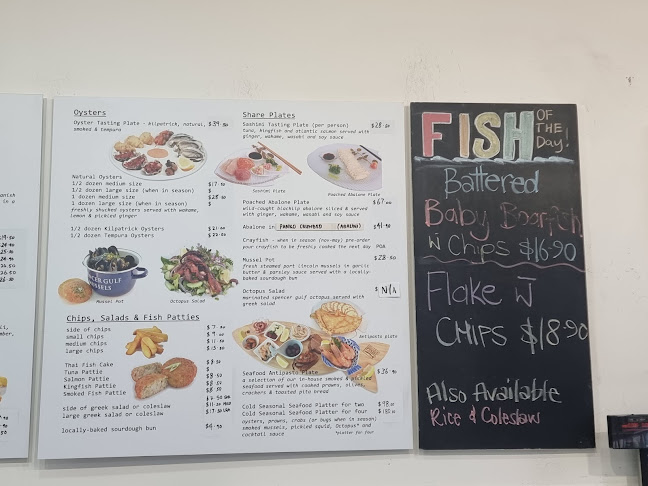 Oysters
Oyster Tasting Plate - kilpatrick, natural, $39.50
smoked & tempura
Natural Oysters
1/2 dozen medium size $17.50
1/2 dozen large size (when in season) $
1 dozen medium size $28.50
1 dozen large size (when in season) $
freshly shucked oysters served with wakame,
lemon & pickled ginger
1/2 dozen Kilpatrick Oysters $21.00
1/2 dozen Tempura Oysters $22.00
Mussel Pot
Octopus Salad
Chips, Salads & Fish Patties
side of chips
small chips
medium chips
large chips
Thai Fish Cake
Tuna Pattie
Salmon Pattie
Kingfish Pattie
Smoked Fish Pattie
side of greek salad or coleslaw
large greek salad or coleslaw
locally-baked sourdough bun
Share Plates
Sashimi Tasting Plate (per person) $28.50
tuna, kingfish and atlantic salmon served with
ginger, wakame, wasabi and soy sauce
Sashimi Plate
Poached Abalone Plate
Poached Abalone Plate $67.00
wild-caught blacklip abalone sliced & served
with ginger, wakame, wasabi and soy sauce
Abalone in PANKO CRUMBED
Crayfish - when in season (nov-may) pre-order
your crayfish to be freshly cooked the next day POA
Mussel Pot $28.50
fresh steamed port lincoln mussels in garlic
butter & parsley sauce served with a locally-
baked sourdough bun
Octopus Salad $ N/A
marinated spencer gulf octopus served with
greek salad
Antipasto plate
Seafood Antipasto Plate
a selection of our in-house smoked & pickled
seafood served with cooked prawns, olives,
crackers & toasted pita bread
Cold Seasonal Seafood Platter for two
Cold Seasonal Seafood Platter for four
oysters, prawns, crabs (or bugs when in season)
smoked mussels, pickled squid, Octopus* and
cocktail sauce
*platter for four
FISH OF THE Day!
Battered
Baby Boarfish
W Chips $16.90
Flake W
CHIPS $18.90
Also Available
Rice & Coleslaw